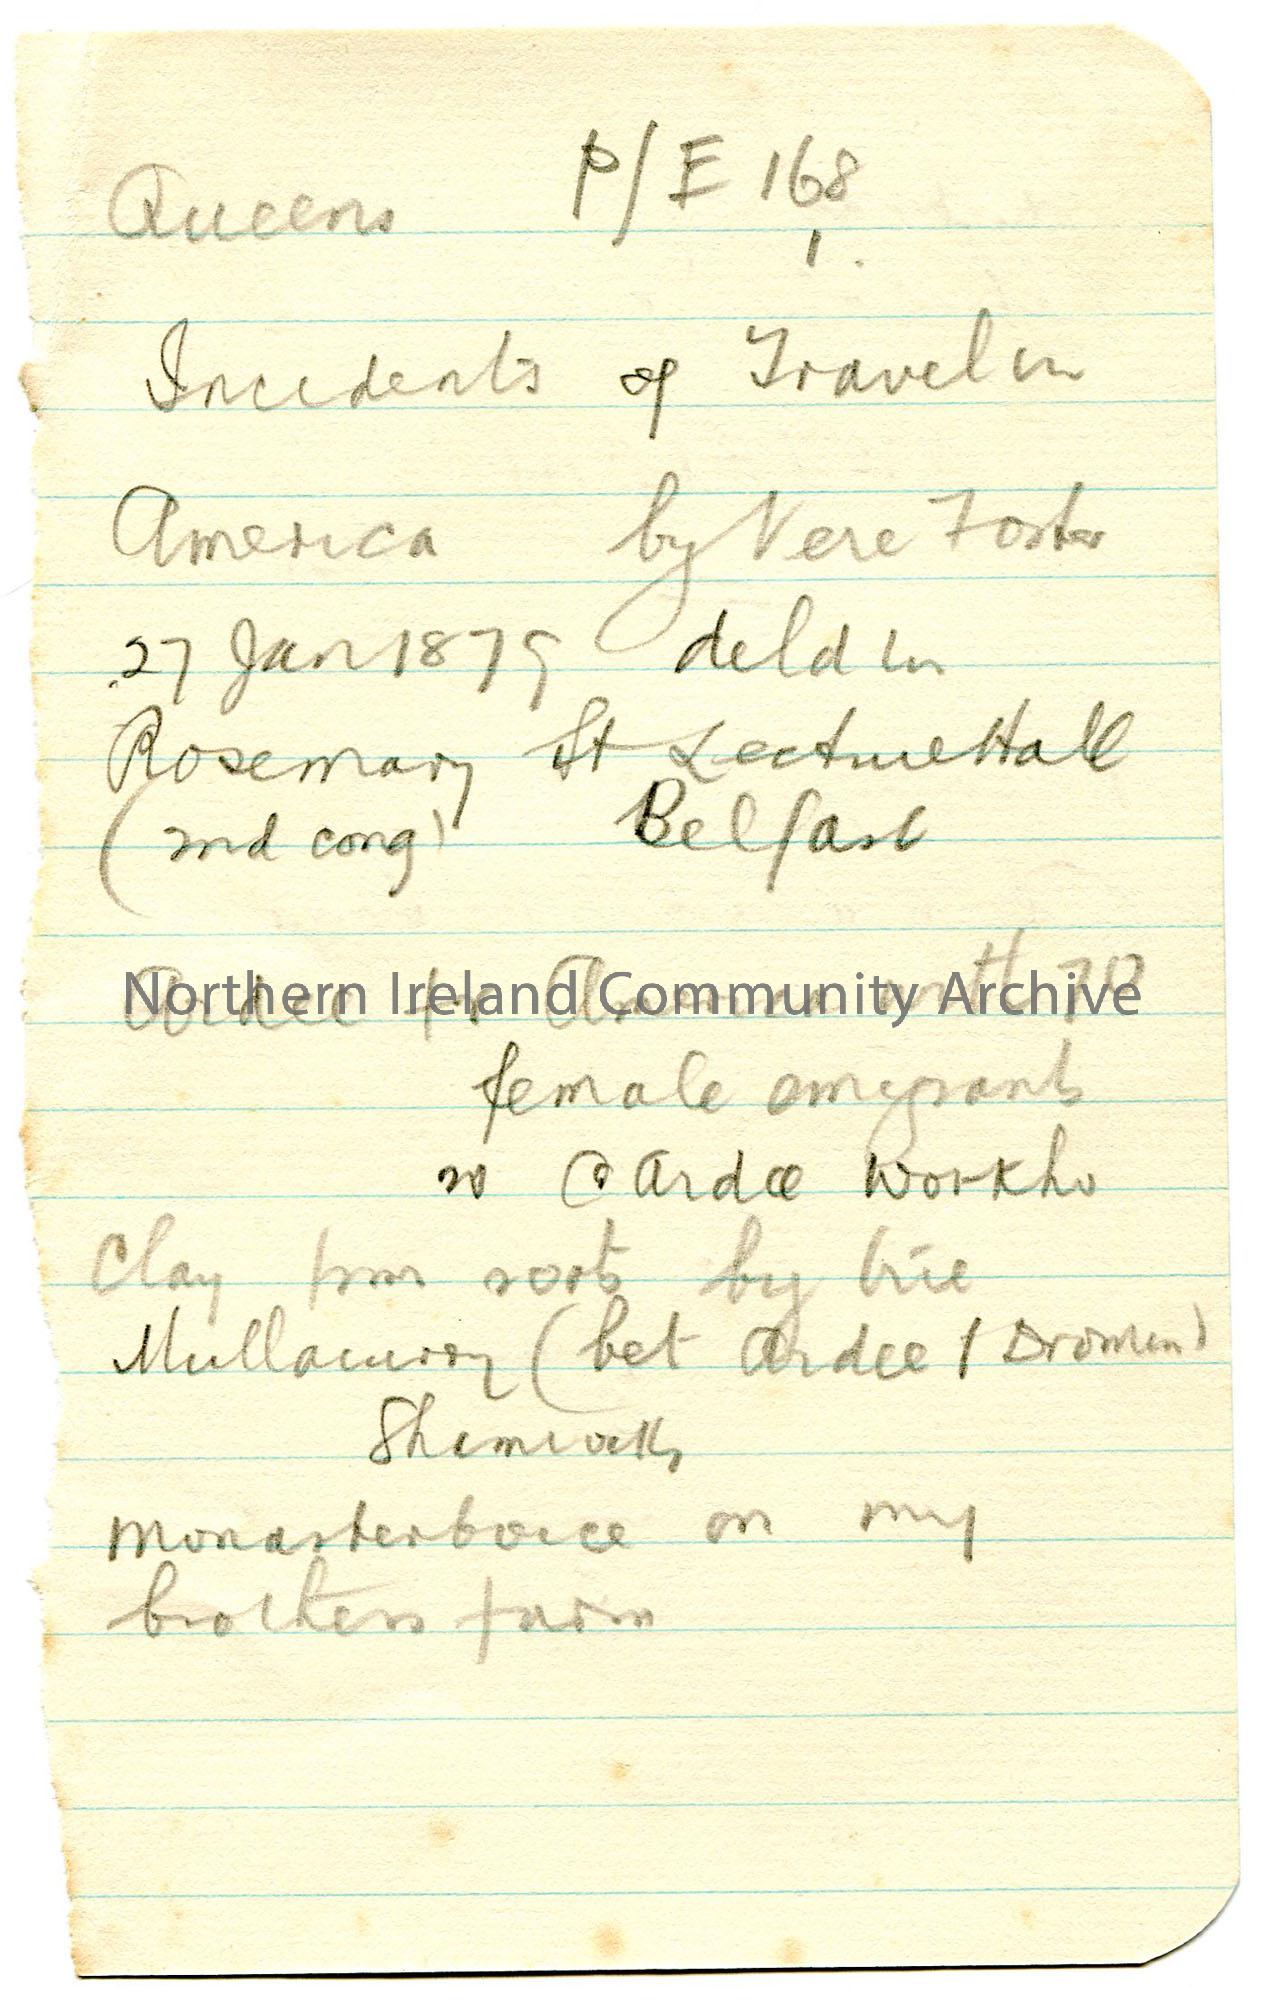 Queens P/E 168
1.
Incidents of Travel in
America by Vere Foster
27 Jan 1879 deld in
Rosemary St Lecture Hall
(2nd cong) Belfast
Northern Ireland Community Archive
Ardee to America with 70
female emigrants
20 @ Ardee Workho
Clay from roots by
Mullacurry (bet Ardee / Dromin)
Shamrocks
Monasterboice on my
brothers farm